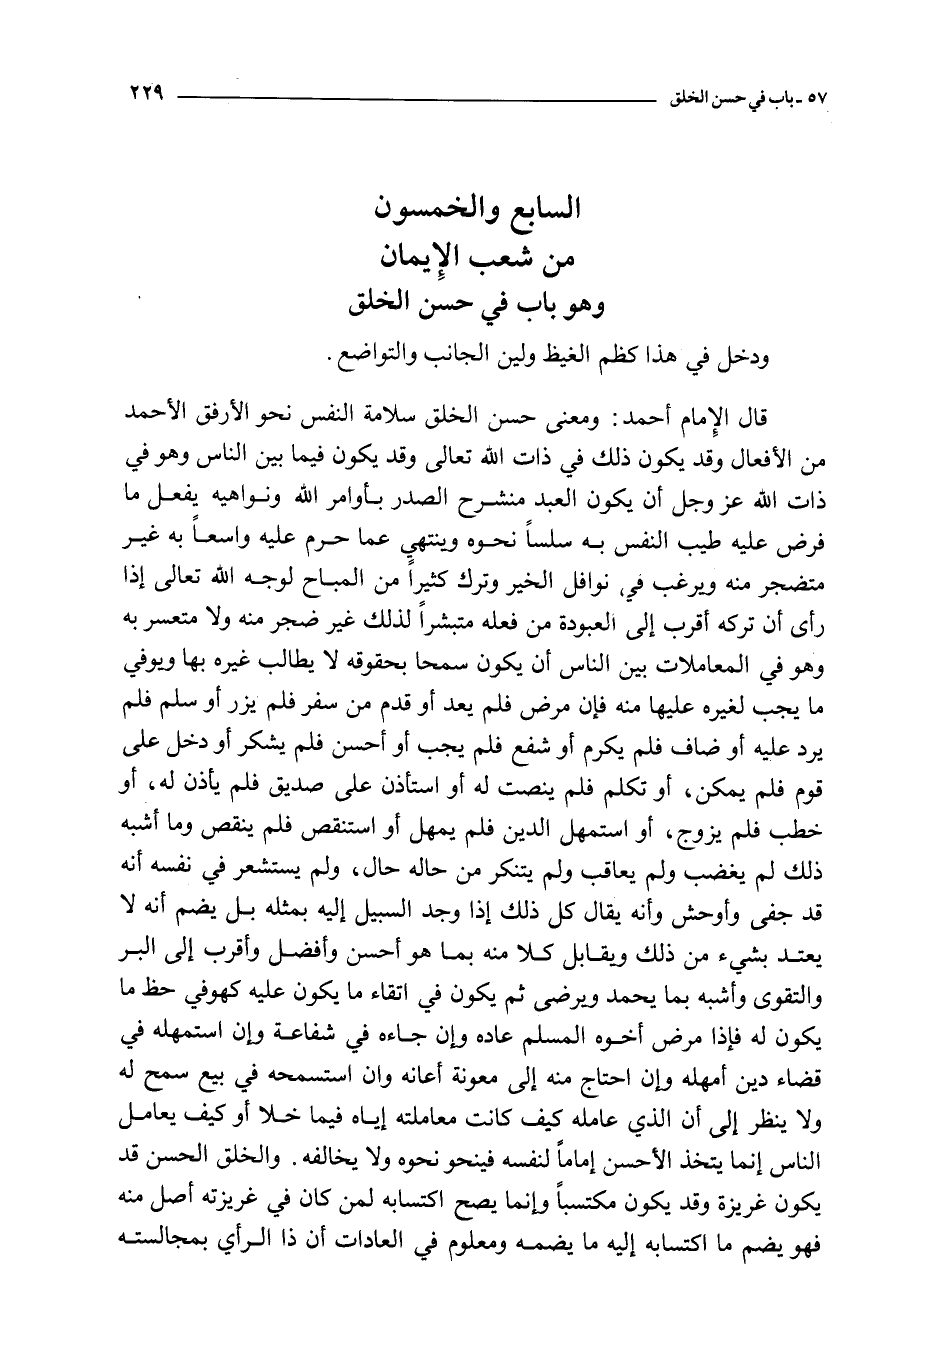 ٥٧ - باب في حسن الخلق ٢٢٩
السابع والخمسون
من شعب الإيمان
وهو باب في حسن الخلق
ودخل في هذا كظم الغيظ ولين الجانب والتواضع .
قال الإمام أحمد : ومعنى حسن الخلق سلامة النفس نحو الأرفق الأحمد
من الأفعال وقد يكون ذلك في ذات الله تعالى وقد يكون فيما بين الناس وهو في
ذات الله عز وجل أن يكون العبد منشرح الصدر بأوامر الله ونواهيه يفعل ما
فرض عليه طيب النفس به سلساً نحوه وينتهي عما حرم عليه واسعاً به غير
متضجر منه ويرغب في نوافل الخير وترك كثيراً من المباح لوجه الله تعالى إذا
رأى أن تركه أقرب إلى العبودة من فعله متبشراً لذلك غير ضجر منه ولا متعسر به
وهو في المعاملات بين الناس أن يكون سمحا بحقوقه لا يطالب غيره بها ويوفي
ما يجب لغيره عليها منه فإن مرض فلم يعد أو قدم من سفر فلم يزر أو سلم فلم
يرد عليه أو ضاف فلم يكرم أو شفع فلم يجب أو أحسن فلم يشكر أو دخل على
قوم فلم يمكن، أو تكلم فلم ينصت له أو استأذن على صديق فلم يأذن له، أو
خطب فلم يزوج، أو استمهل الدين فلم يمهل أو استنقص فلم ينقص وما أشبه
ذلك لم يغضب ولم يعاقب ولم يتنكر من حاله حال، ولم يستشعر في نفسه أنه
قد جفى وأوحش وأنه يقال كل ذلك إذا وجد السبيل إليه بمثله بل يضم أنه لا
يعتد بشيء من ذلك ويقابل كلا منه بما هو أحسن وأفضل وأقرب إلى البر
والتقوى وأشبه بما يحمد ويرضى ثم يكون في اتقاء ما يكون عليه كهوفي حظ ما
يكون له فإذا مرض أخوه المسلم عاده وإن جاءه في شفاعة وإن استمهله في
قضاء دين أمهله وإن احتاج منه إلى معونة أعانه وان استسمحه في بيع سمح له
ولا ينظر إلى أن الذي عامله كيف كانت معاملته إياه فيما خلا أو كيف يعامل
الناس إنما يتخذ الأحسن إماماً لنفسه فينحو نحوه ولا يخالفه . والخلق الحسن قد
يكون غريزة وقد يكون مكتسباً وإنما يصح اكتسابه لمن كان في غريزته أصل منه
فهو يضم ما اكتسابه إليه ما يضمه ومعلوم في العادات أن ذا الرأي بمجالسته